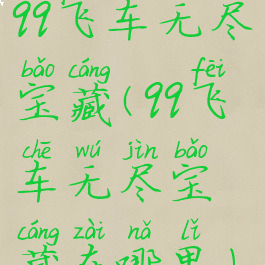 99飞车无尽
bǎo cáng fēi
宝藏(99飞
chē wú jìn bǎo
车无尽宝
cáng zài nǎ lǐ
藏在哪里)